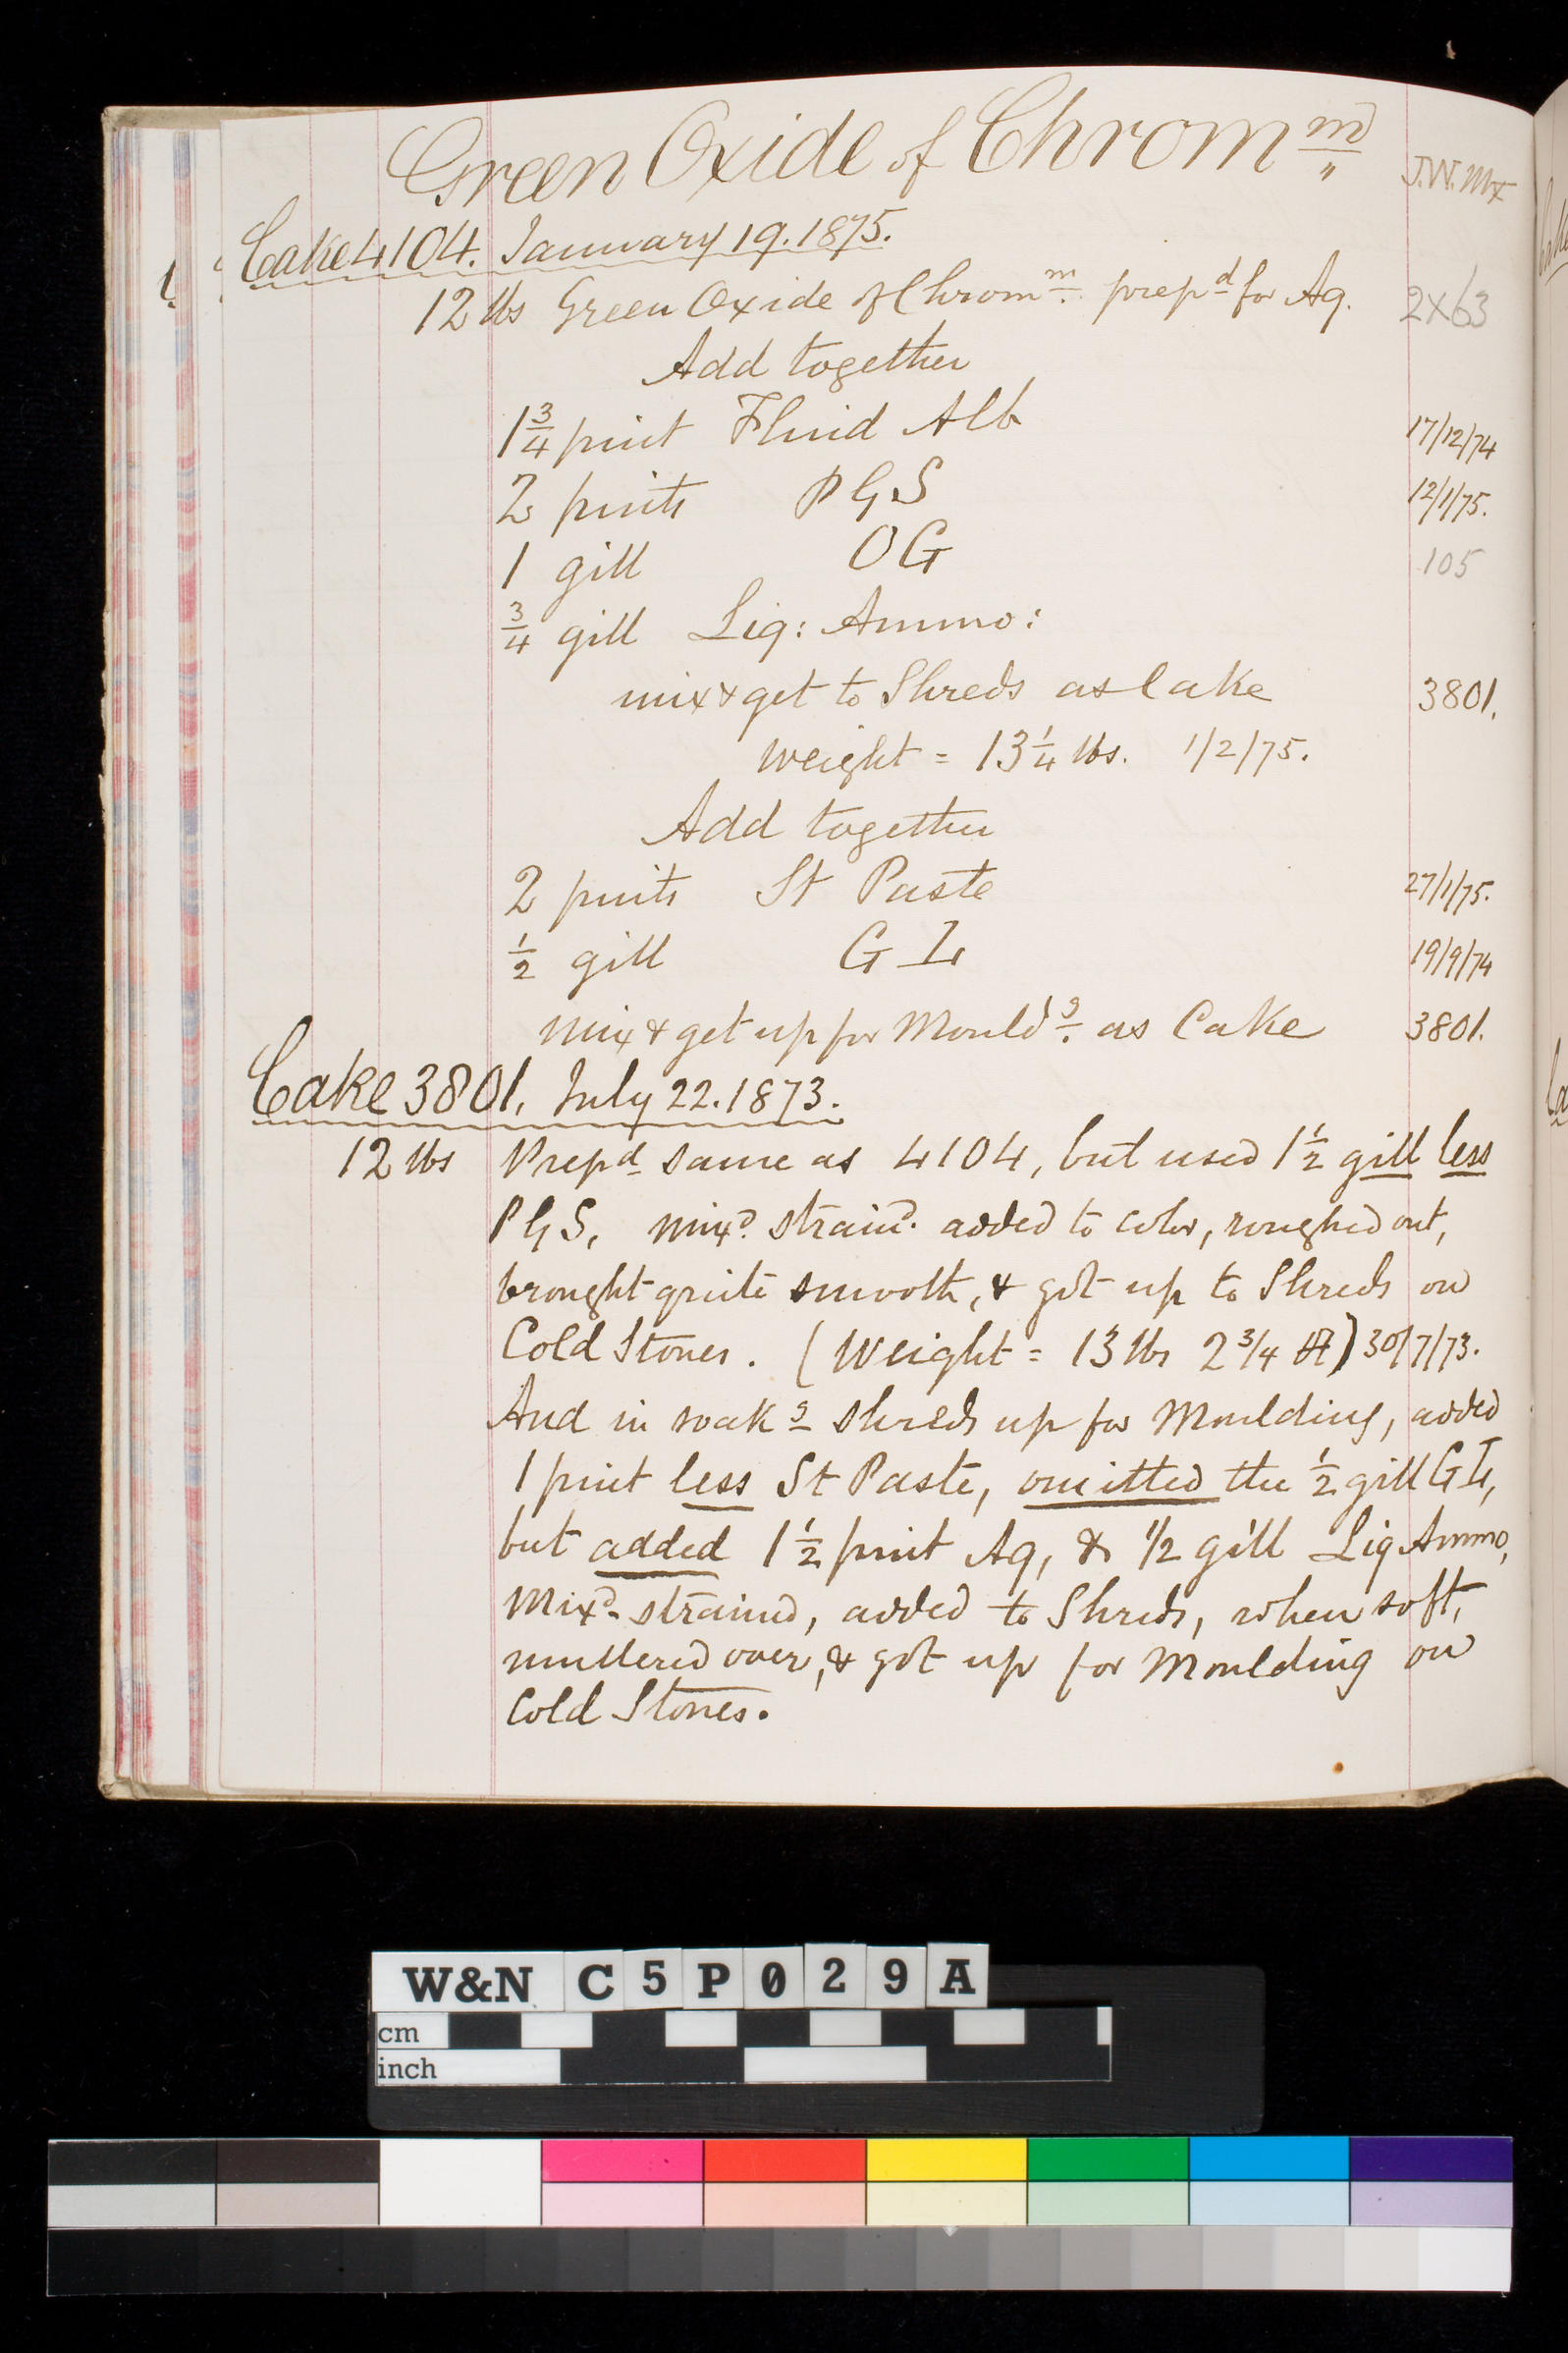 Green Oxide of Chrom m J.W. Mx
Cake 4104. January 19. 1875.
12 lbs Green Oxide of Chrom m prep d for Aq. 2x63
Add together
1 3/4 pint Fluid Alb 17/12/74
2 pints PGS 12/1/75.
1 gill OG 105
3/4 gill Liq: Ammo:
mix & get to Shreds as Cake 3801.
Weight = 13 1/4 lbs. 1/2/75.
Add together
2 pints St Paste 27/1/75.
1/2 gill G I 19/9/74
mix & get up for Mould g. as Cake 3801.
Cake 3801. July 22. 1873.
12 lbs Prep d same as 4104, but used 1 1/2 gill less
PGS, mix d. strain d. added to color, roughed out,
brought quite smooth, & got up to Shreds on
Cold Stones. (Weight = 13 lbs 2 3/4 ) 30/7/73.
And in soak g shreds up for Moulding, added
1 pint less St Paste, omitted the 1/2 gill G I,
but added 1 1/2 pint Aq, & 1/2 gill Liq Ammo,
Mix d. strained, added to Shreds, when soft,
mullered over, & got up for Moulding on
Cold Stones.
W&N C5P029A
cm
inch